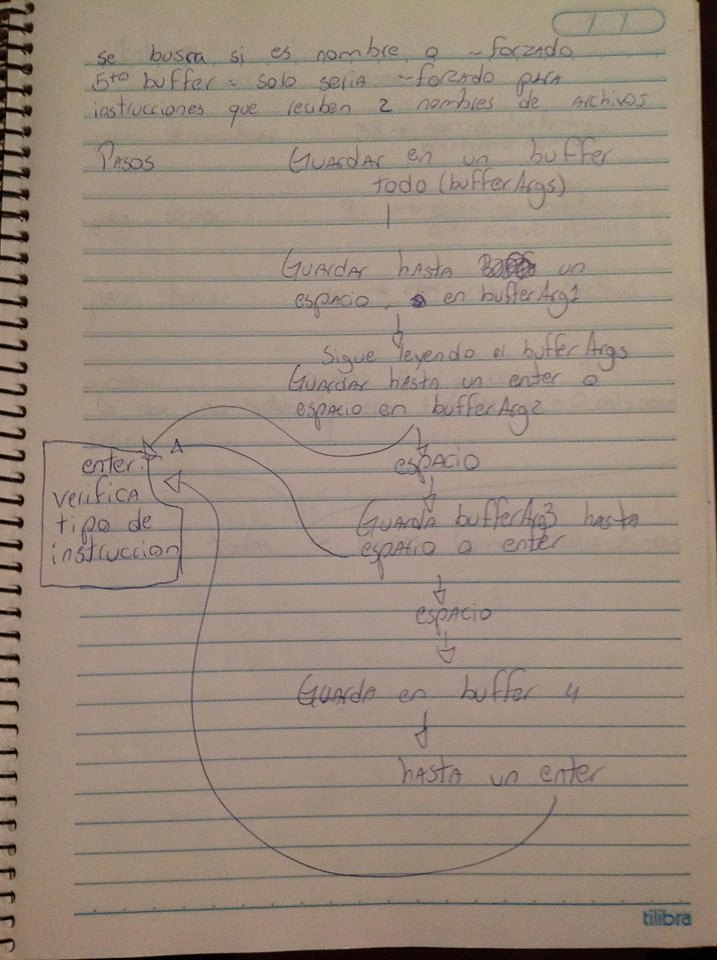 se busca si es nombre o -forzado
5to buffer - solo seria -forzado para
instrucciones que reciben 2 nombres de archivos
Pasos
Guardar en un buffer
todo (bufferArgs)
Guardar hasta un
espacio, en bufferArg1
Sigue leyendo el bufferArgs
Guardar hasta un enter o
espacio en bufferArg2
enter:
verifica
tipo de
instruccion
espacio
Guarda bufferArg3 hasta
espacio o enter
espacio
Guarda en buffer 4
hasta un enter
tilibra